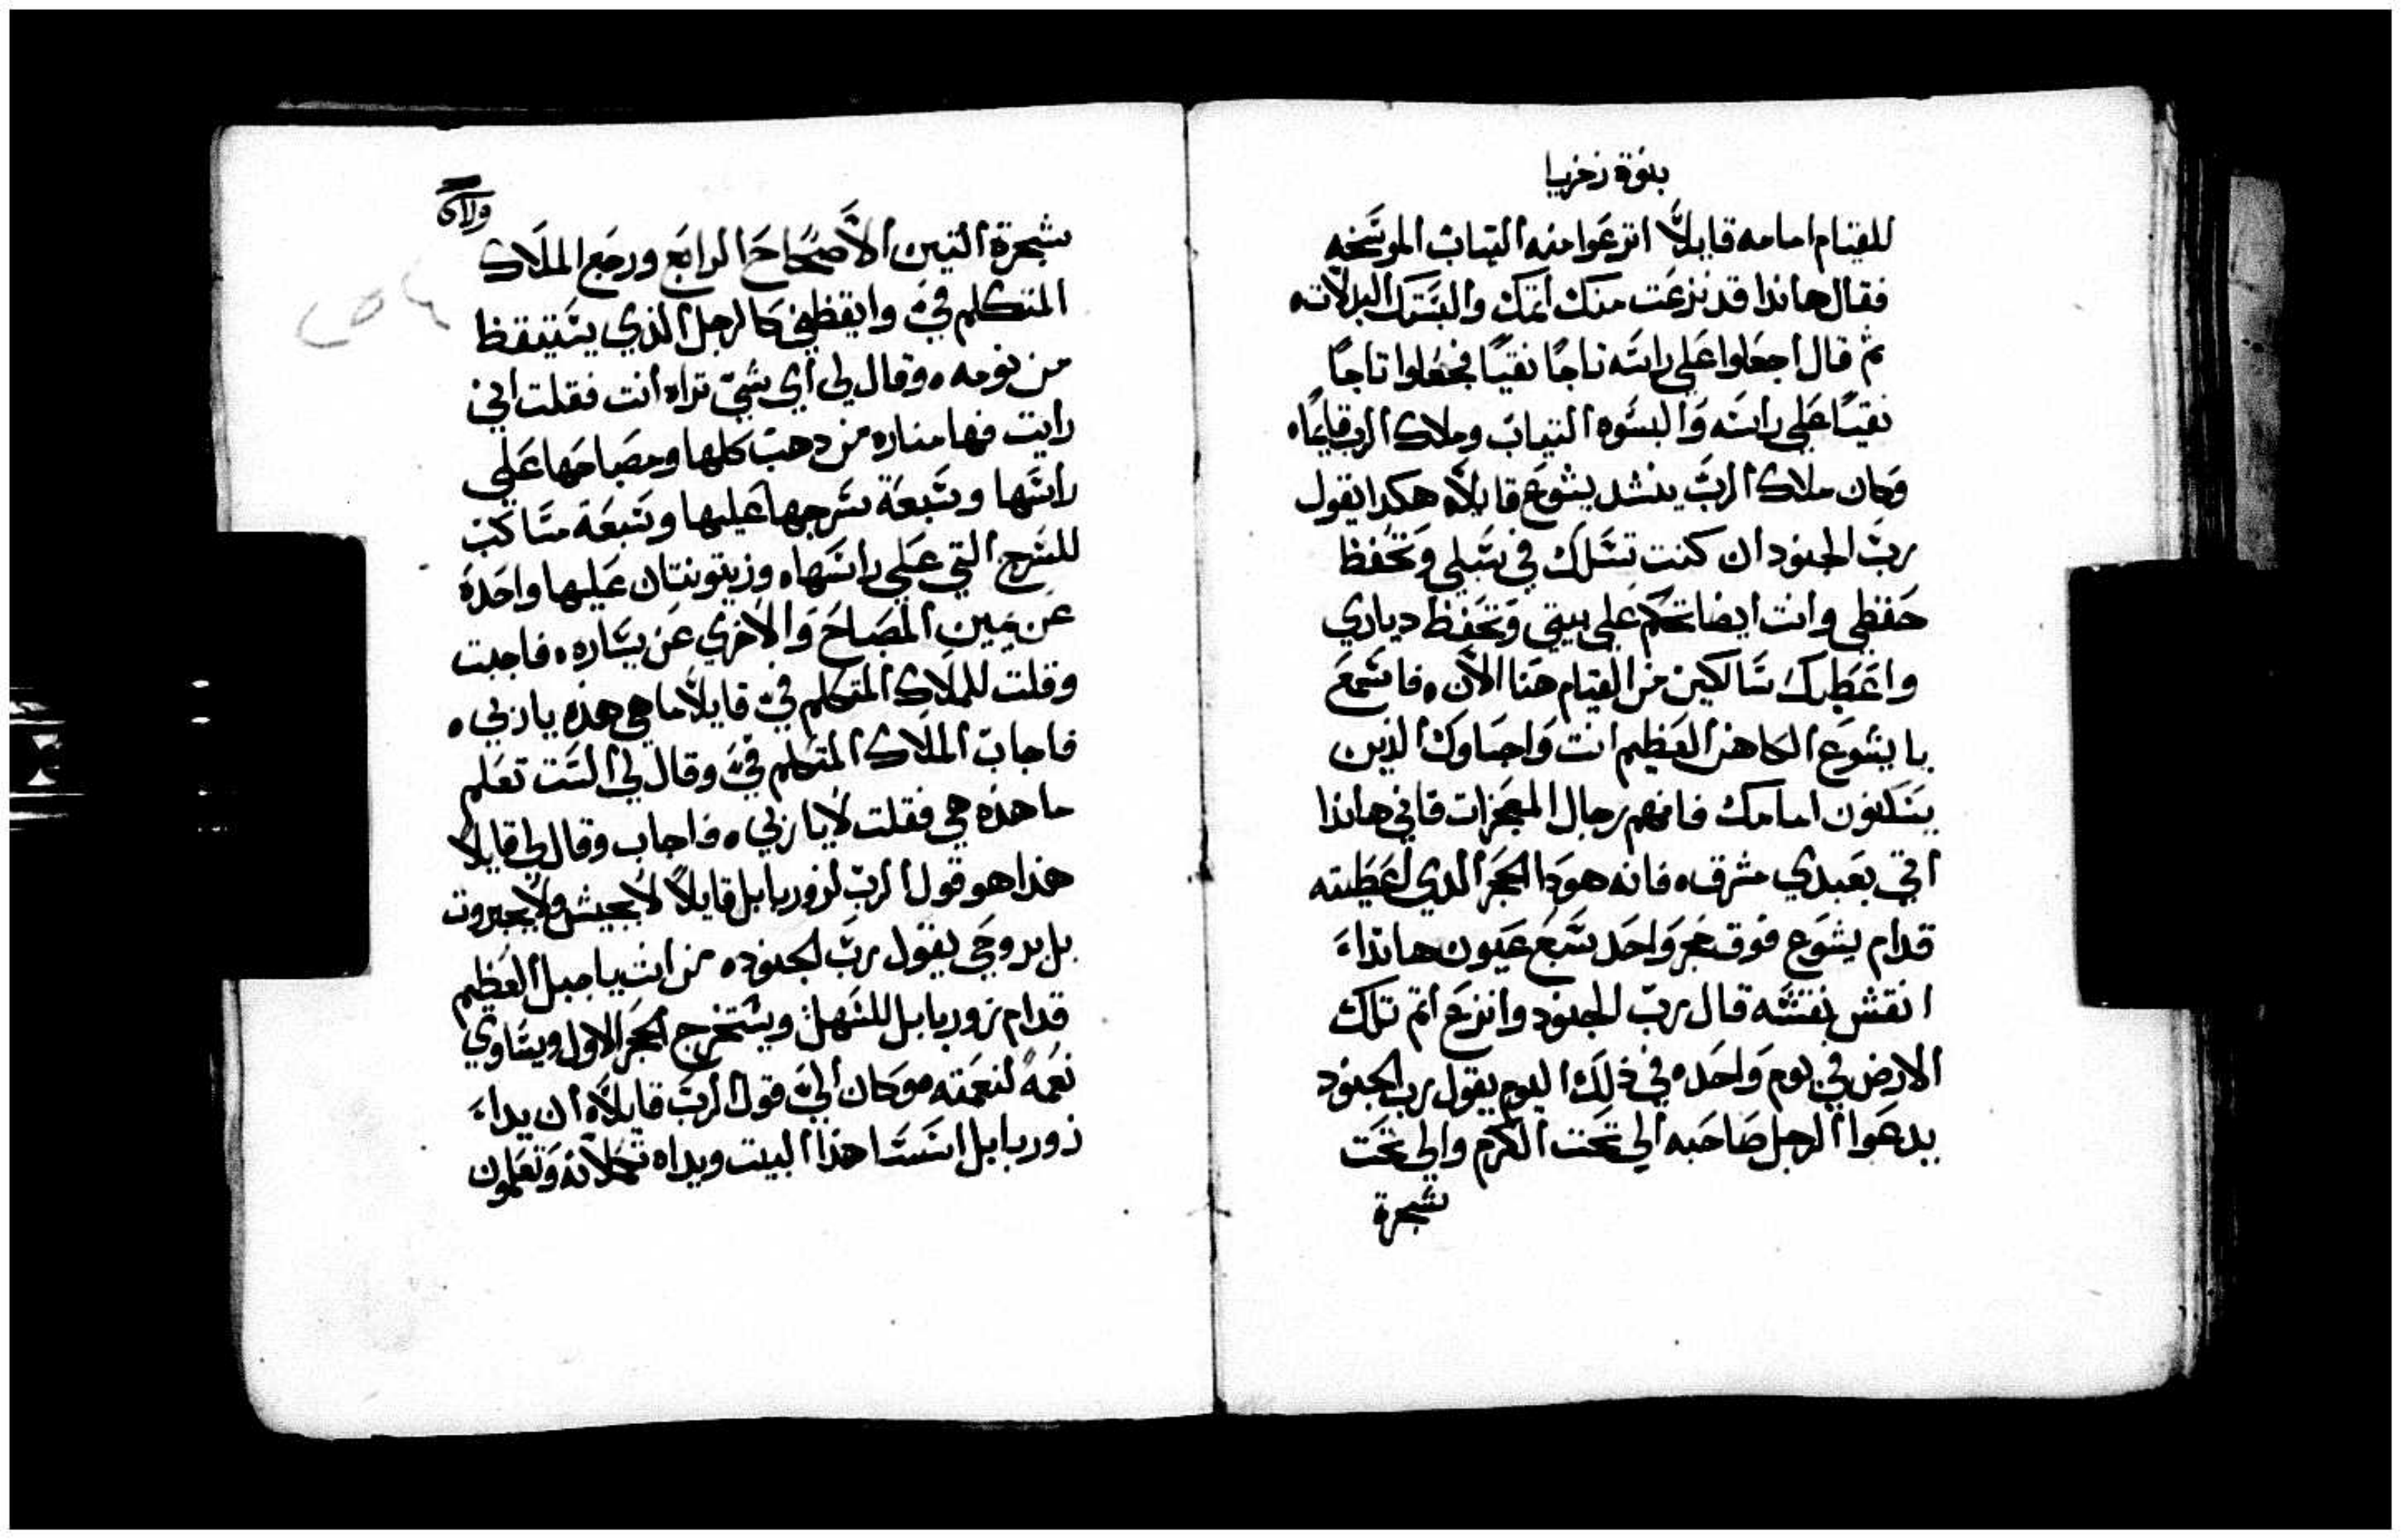 بنوة زخريا
للقيام امامه قايلاً انزعوا منه الثياب الموسخه
فقال هانذا قد نزعت منك اثمك والبستك البدلات
ثم قال اجعلوا علي راسه تاجًا نقيًا فجعلوا تاجًا
نقيًا علي راسه والبسوه الثياب وملاك الرب قايمًا
وكان ملاك الرب ينشد يشوع قايلاً هكدا يقول
رب الجنود ان كنت تسلك في سبلي وتحفظ
حفظي وانت ايضا تحكم علي بيتي وتحفظ دياري
واعطيك سالكين من القيام هنا الان فاسمع
يا يشوع الكاهن العظيم انت واصباوك الذين
يسكنون امامك فانهم رجال المعجزات فاني هانذا
اتي بعبدي مشرق فانه هودا الحجر الدي اعطيته
قدام يشوع فوق حجر واحد سبع عيون هانذاء
انقش نقشه قال رب الجنود وانزع اثم تلك
الارض في يوم واحد في ذلك اليوم يقول رب الجنود
يدعوا الرجل صاحبه الي تحت الكرم والي تحت
شجرة
شجرة التين الأصحاح الرابع ورجع الملاك
المتكلم في وايقظني كالرجل الذي يستيقظ
من نومه وقال لي اي شي تراه انت فقلت اني
رايت فها مناره من دهب كلها ومصباحها علي
راسها وسبعة سرجها عليها وسبعة مساكب
للسرج التي علي راسها وزيتونتان عليها واحدة
عن يمين المصباح والاخري عن يساره فاجبت
وقلت للملاك المتكلم في قايلاً ما هي هذه يا ربي
فاجاب الملاك المتكلم في وقال لي الست تعلم
ما هذه هي فقلت لا يا ربي فاجاب وقال لي قايلاً
هذا هو قول الرب لزوربابل قايلاً لا بجيش ولا بجبروت
بل بروحي يقول رب الجنود من انت يا جبل العظيم
قدام زوربابل للسهل ويستخرج الحجر الاول ويساوي
نعمة لنعمته وكان الي قول الرب قايلاً ان يداء
زوربابل اسستا هذا البيت ويداه تكملانه وتعلمون